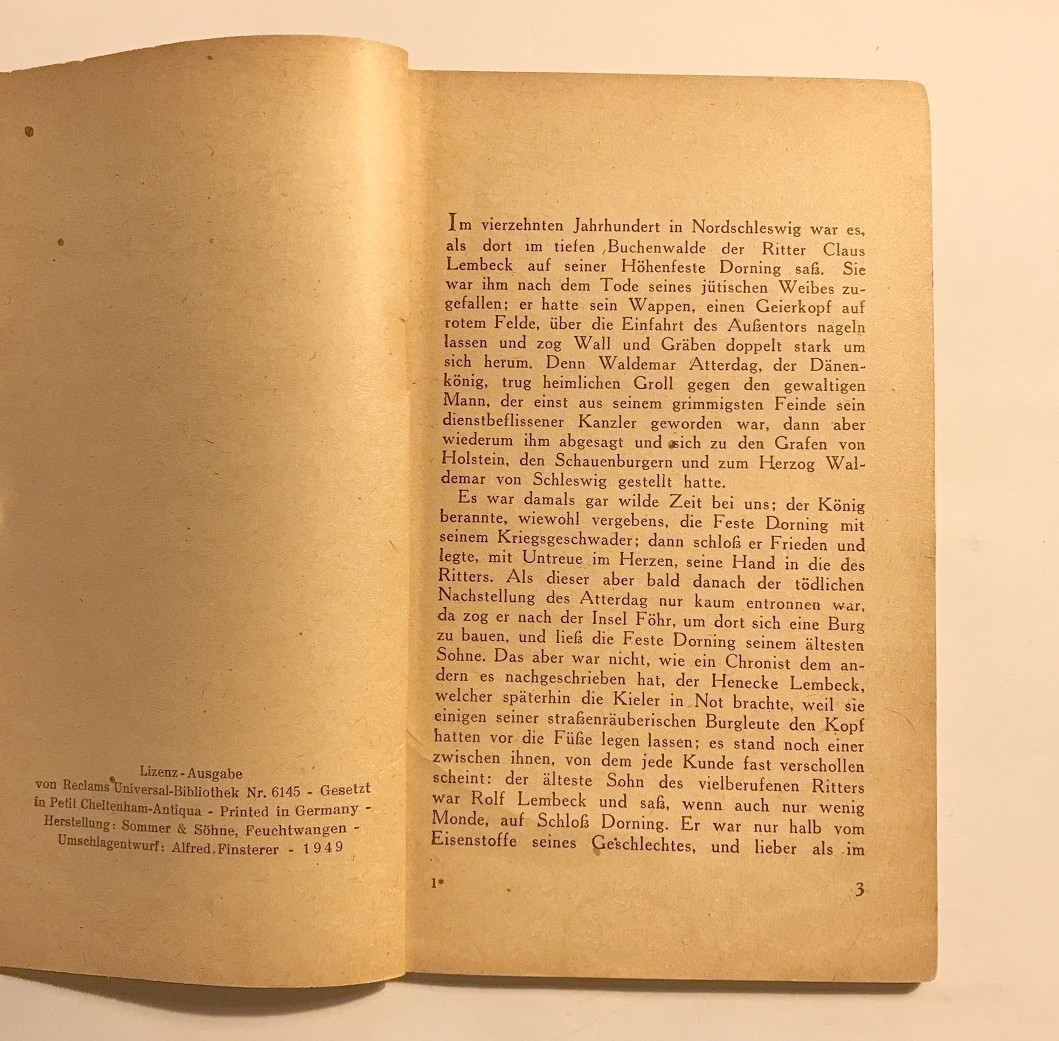 Lizenz-Ausgabe
von Reclams Universal-Bibliothek Nr. 6145 - Gesetzt
in Petit Cheltenham-Antiqua - Printed in Germany -
Herstellung: Sommer & Söhne, Feuchtwangen -
Umschlagentwurf: Alfred Finsterer - 1949
Im vierzehnten Jahrhundert in Nordschleswig war es,
als dort im tiefen Buchenwalde der Ritter Claus
Lembeck auf seiner Höhenfeste Dorning saß. Sie
war ihm nach dem Tode seines jütischen Weibes zu-
gefallen; er hatte sein Wappen, einen Geierkopf auf
rotem Felde, über die Einfahrt des Außentors nageln
lassen und zog Wall und Gräben doppelt stark um
sich herum. Denn Waldemar Atterdag, der Dänen-
könig, trug heimlichen Groll gegen den gewaltigen
Mann, der einst aus seinem grimmigsten Feinde sein
dienstbeflissener Kanzler geworden war, dann aber
wiederum ihm abgesagt und sich zu den Grafen von
Holstein, den Schauenburgern und zum Herzog Wal-
demar von Schleswig gestellt hatte.
Es war damals gar wilde Zeit bei uns; der König
berannte, wiewohl vergebens, die Feste Dorning mit
seinem Kriegsgeschwader; dann schloß er Frieden und
legte, mit Untreue im Herzen, seine Hand in die des
Ritters. Als dieser aber bald danach der tödlichen
Nachstellung des Atterdag nur kaum entronnen war,
da zog er nach der Insel Föhr, um dort sich eine Burg
zu bauen, und ließ die Feste Dorning seinem ältesten
Sohne. Das aber war nicht, wie ein Chronist dem an-
dern es nachgeschrieben hat, der Henecke Lembeck,
welcher späterhin die Kieler in Not brachte, weil sie
einigen seiner straßenräuberischen Burgleute den Kopf
hatten vor die Füße legen lassen; es stand noch einer
zwischen ihnen, von dem jede Kunde fast verschollen
scheint: der älteste Sohn des vielberufenen Ritters
war Rolf Lembeck und saß, wenn auch nur wenig
Monde, auf Schloß Dorning. Er war nur halb vom
Eisenstoffe seines Geschlechtes, und lieber als im
1*
3